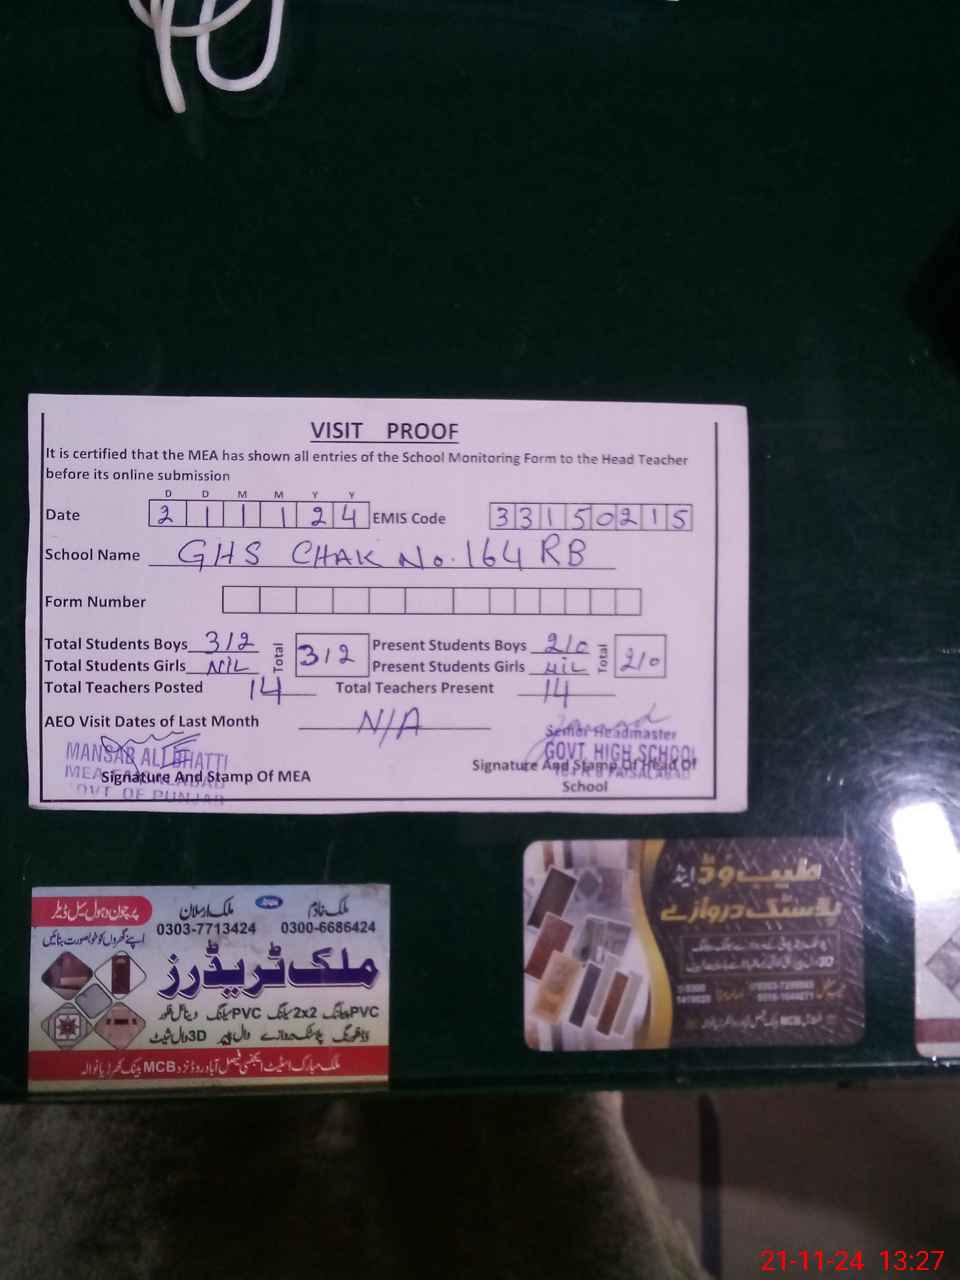 VISIT PROOF
It is certified that the MEA has shown all entries of the School Monitoring Form to the Head Teacher
before its online submission
D D M M Y Y
Date 2 1 1 1 2 4 EMIS Code 3 3 1 5 0 2 1 5
School Name GHS CHAK No. 164 RB
Form Number
Total Students Boys 312 Total 312 Present Students Boys 210 Total 210
Total Students Girls NIL Present Students Girls NIL
Total Teachers Posted 14 Total Teachers Present 14
AEO Visit Dates of Last Month N/A
MANSAB ALI BHATTI
MEA
GOVT OF PUNJAB
Signature And Stamp Of MEA
Senior Headmaster
GOVT HIGH SCHOOL
FAISALABAD
Signature And Stamp Of Head Of
School
پرچون و ہول سیل ڈیلر
ملک ارسلان ملک خادم
0303-7713424 0300-6686424
اپنے گھروں کو خوبصورت بنائیں
ملک ٹریڈرز
PVC پینلنگ 2x2 سیلنگ PVC سیلنگ ونائل فلور
وڈ فلورنگ پلاسٹک دروازے وال پیپر 3D وال شیٹ
ملک مبارک اسٹیٹ ایجنسی فیصل آباد روڈ نزد MCB بینک کھرڑیانوالہ
طیب وڈ اینڈ
پلاسٹک دروازے
21-11-24 13:27